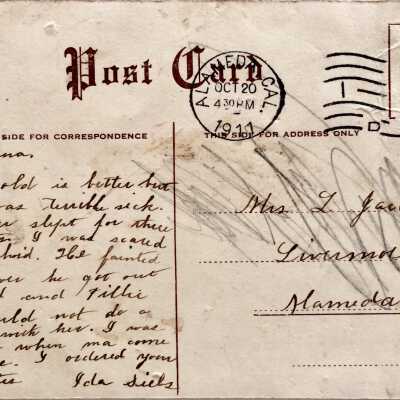 Post Card
ALAMEDA, CAL.
OCT 20
4 30 PM
1911
SIDE FOR CORRESPONDENCE
THIS SIDE FOR ADDRESS ONLY
na,
old is better but
was terrible sick.
er slept for three
I was scared
hoid. He fainted
ver he got out
d and Tillie
uld not do a
with her. I was
when ma come
e. I ordered your
Ida Siels
Mrs L Ja
Livermo
Alameda